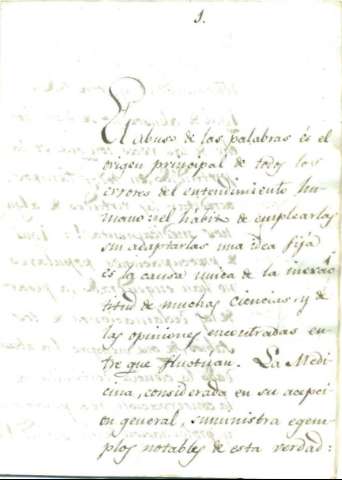 1.
El abuso de las palabras es el
origen principal de todos los
errores del entendimiento hu-
mano: el habito de emplearlas
sin adaptarlas una idea fija
es la causa unica de la inexac-
titud de muchas ciencias, y de
las opiniones encontradas en-
tre que fluctuan. La Medi-
cina, considerada en su acepci-
on general, suministra egem-
plos notables de esta verdad: